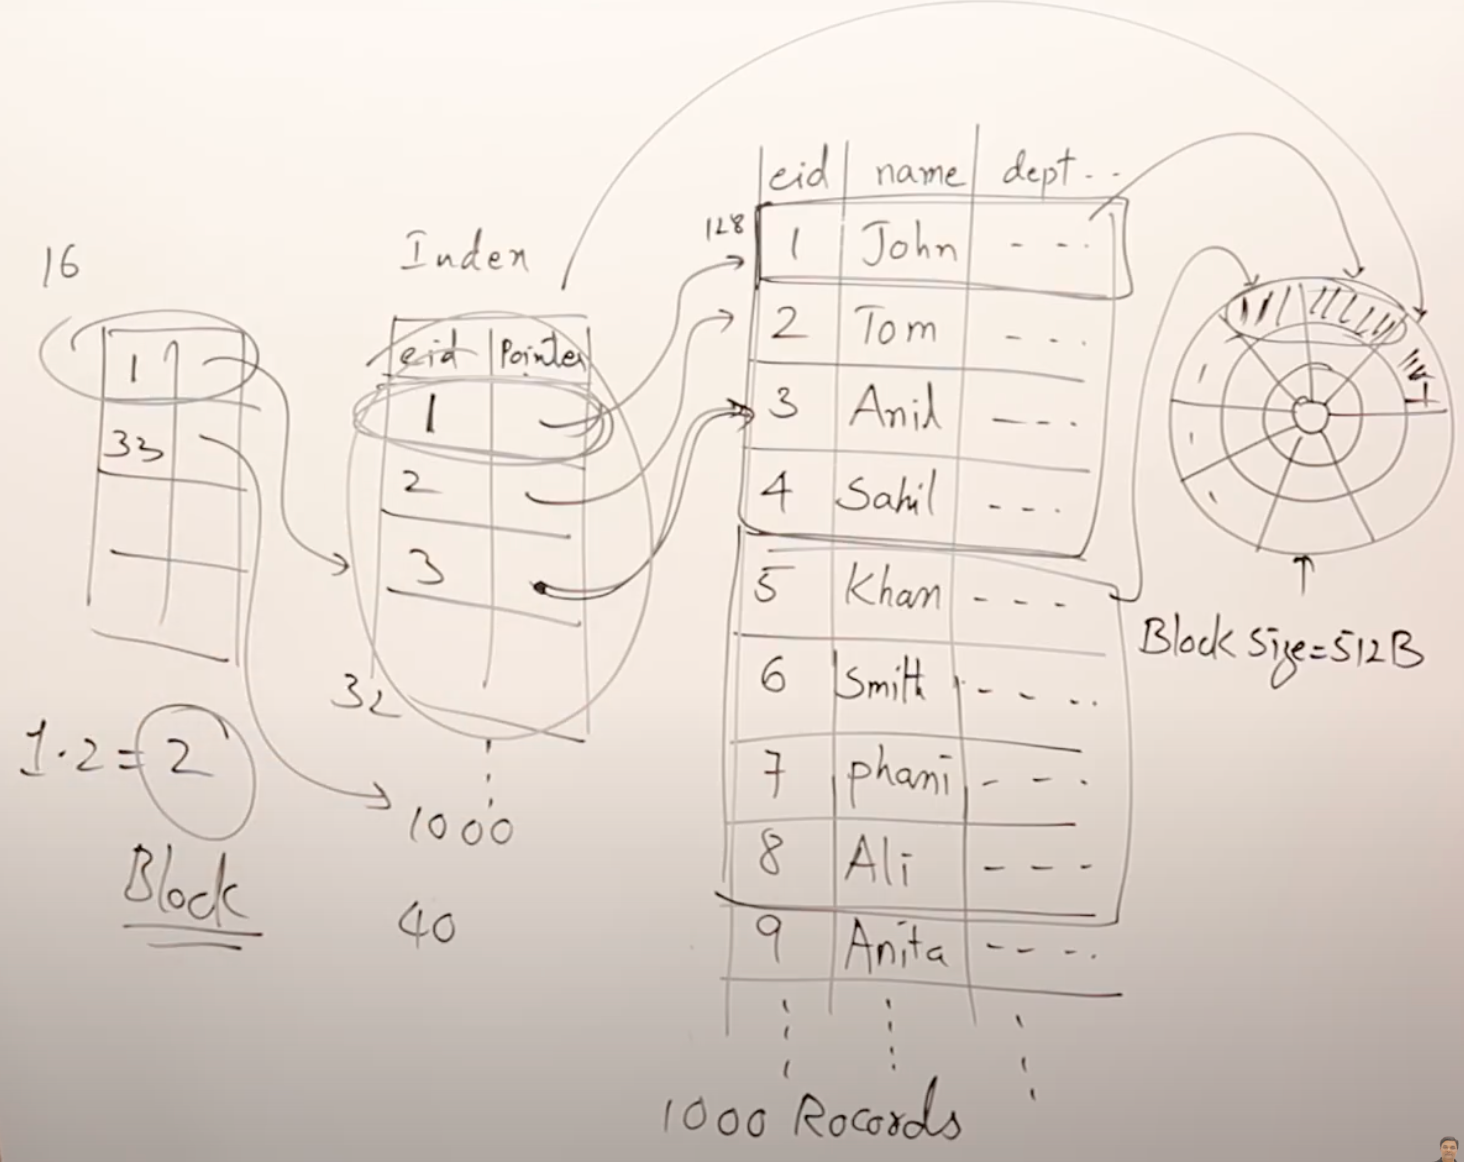 16
1
33
1.2 = 2
Block
Index
eid Pointer
1
2
3
32
1000
40
128
eid name dept - -
1 John - - -
2 Tom - - -
3 Anil - - -
4 Sahil - - -
5 Khan - - -
6 Smith - - - -
7 phani - - -
8 Ali - - -
9 Anita - - - -
1000 Rocords
Block Size=512B